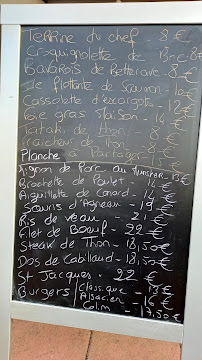 Terrine du chef 8 €
Croquignolette de Brie 8 €
Bavarois de Betterave 8 €
Ile flottante de Saumon 10 €
Cassolette d'escargots 12 €
Foie gras Maison 14 €
Tataki de thon 8 €
Fraîcheur de thon 8 €
Planche à Partager
Mignon de Porc au Munster 15 €
Brochette de Poulet
Aiguillette de Canard
Souris d'Agneau - 19 €
Ris de veau - 21 €
Filet de Boeuf - 22 €
Steak de Thon - 18,50 €
Dos de Cabillaud - 18,50 €
St Jacques - 22 €
Burgers Classique - 13 €
Alsacien - 16 €
Colm - 17,50 €